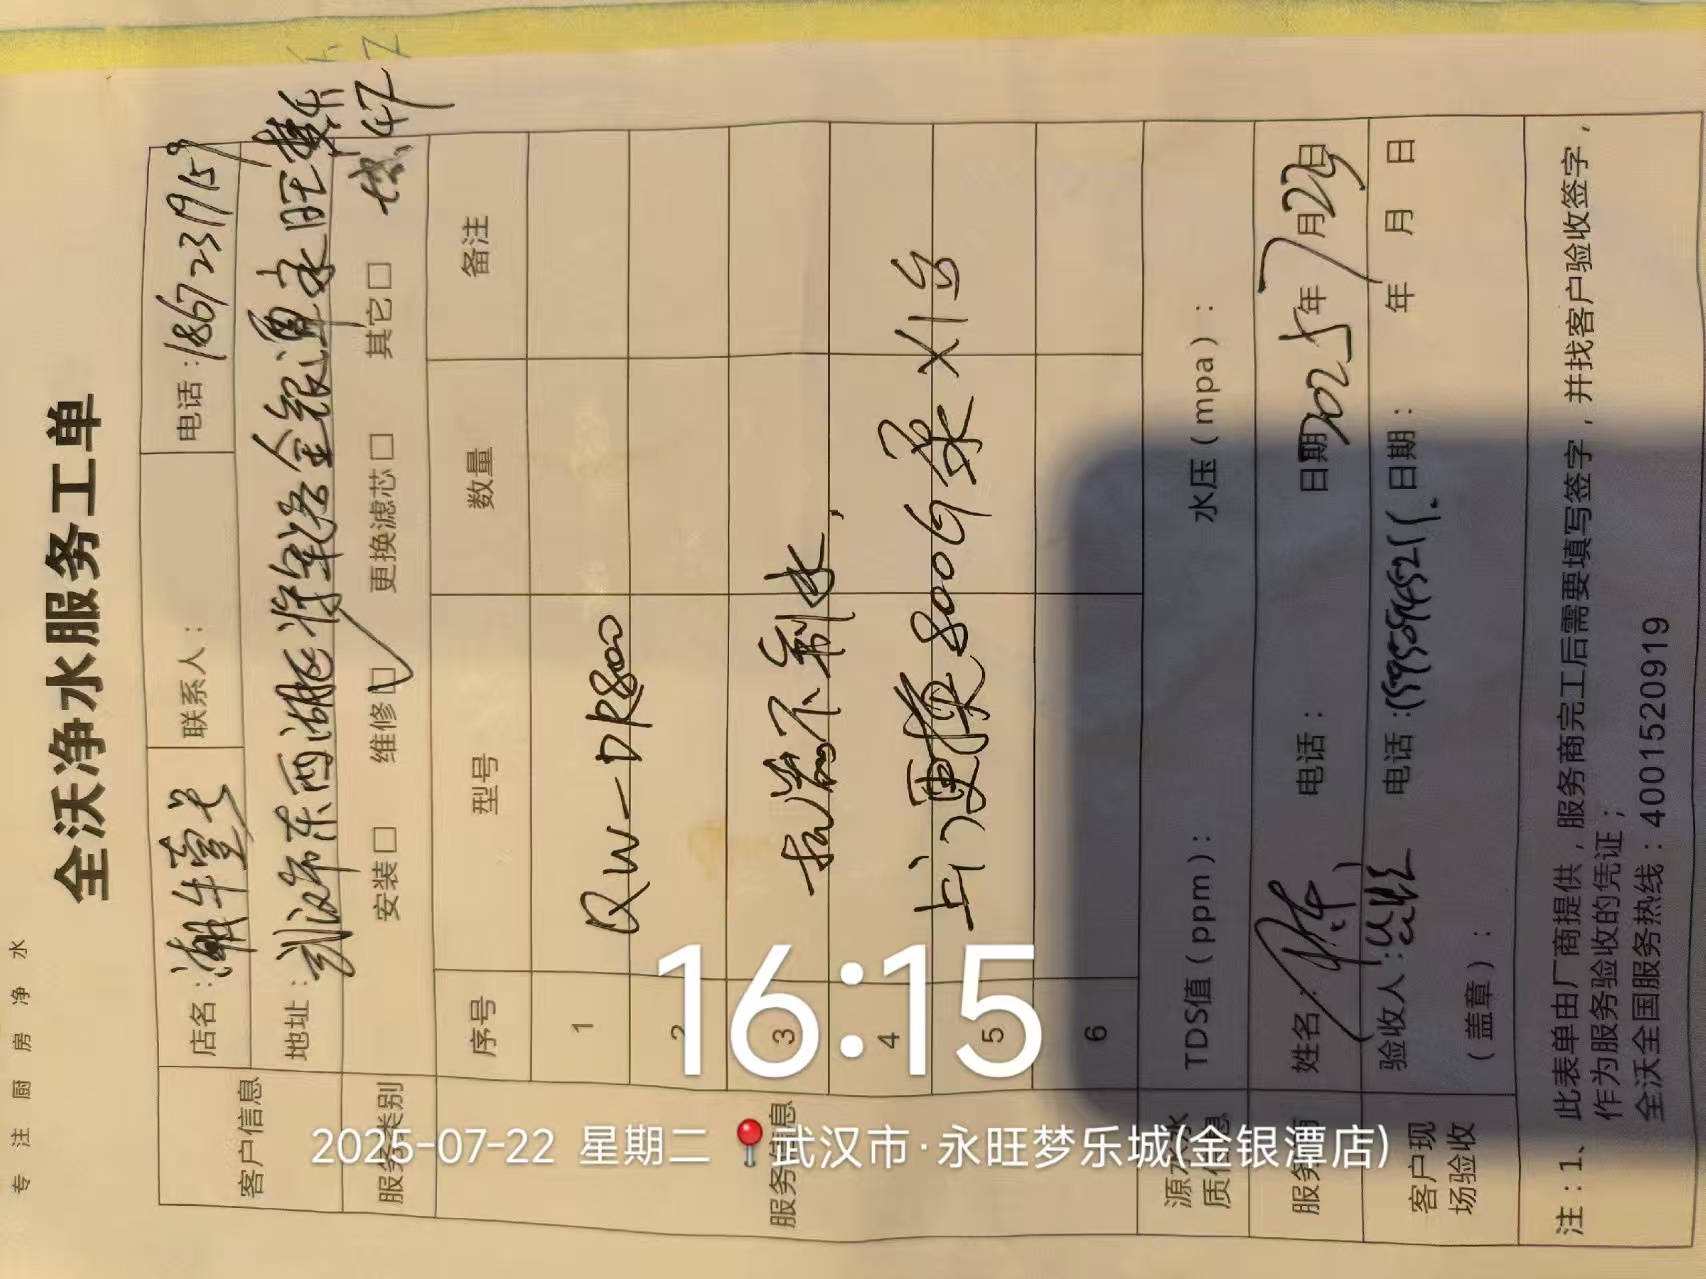 专注厨房净水
全沃净水服务工单
客户信息
店名：潮牛壹号
联系人：
电话：18672319159
地址：武汉市东西湖区将军路金银潭永旺梦乐
服务类别
安装□ 维修□ 更换滤芯□ 其它□
城 47
服务信息
序号 型号 数量 备注
1 QW-DR800
2
3 机器不制水，
4
5 上门更换800G泵X1台
6
源水水质信息
TDS值（ppm）： 水压（mpa）：
服务商
姓名： 电话： 日期 2025年7月22日
客户现场验收
验收人： 电话： 日期： 年 月 日
（盖章）：
注：1、此表单由厂商提供，服务商完工后需要填写签字，并找客户验收签字，
作为服务验收的凭证；
全沃全国服务热线：4001520919
16:15
2025-07-22 星期二 武汉市·永旺梦乐城(金银潭店)